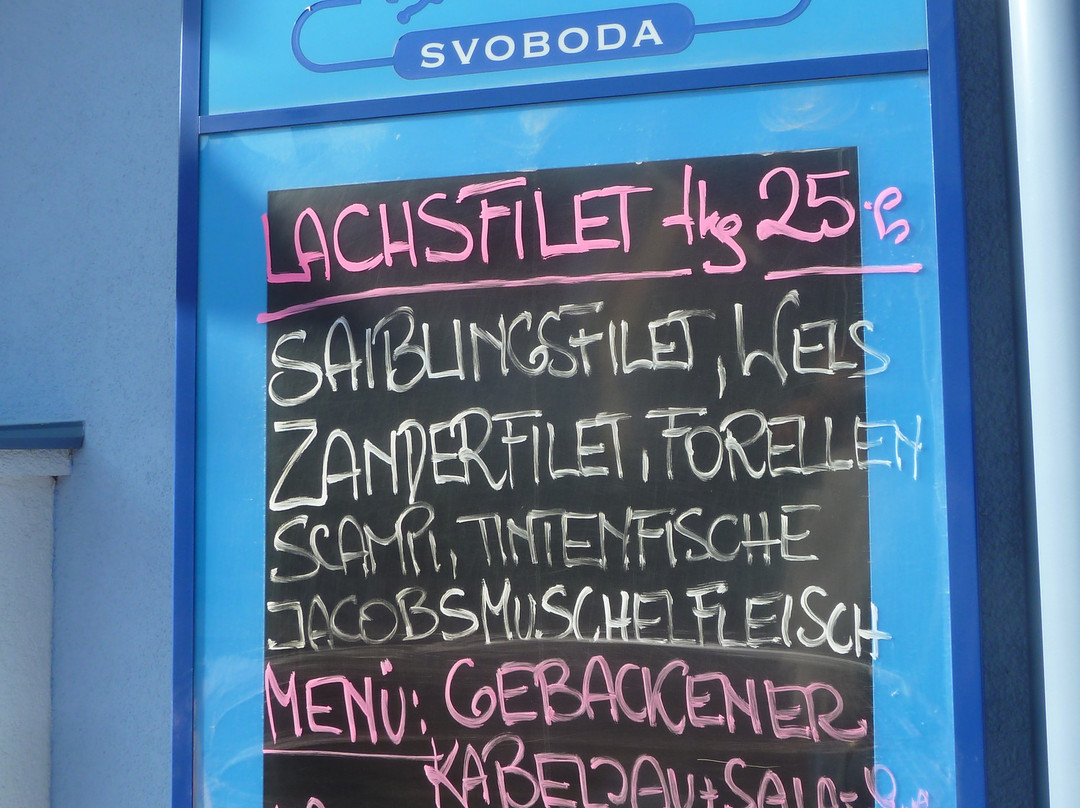 SVOBODA
LACHSFILET 1kg 25.€
SAIBLINGSFILET, WELS
ZANDERFILET, FORELLEN
SCAMPI, TINTENFISCHE
JACOBSMUSCHELFLEISCH
MENÜ: GEBACKENER
KABELJAU +